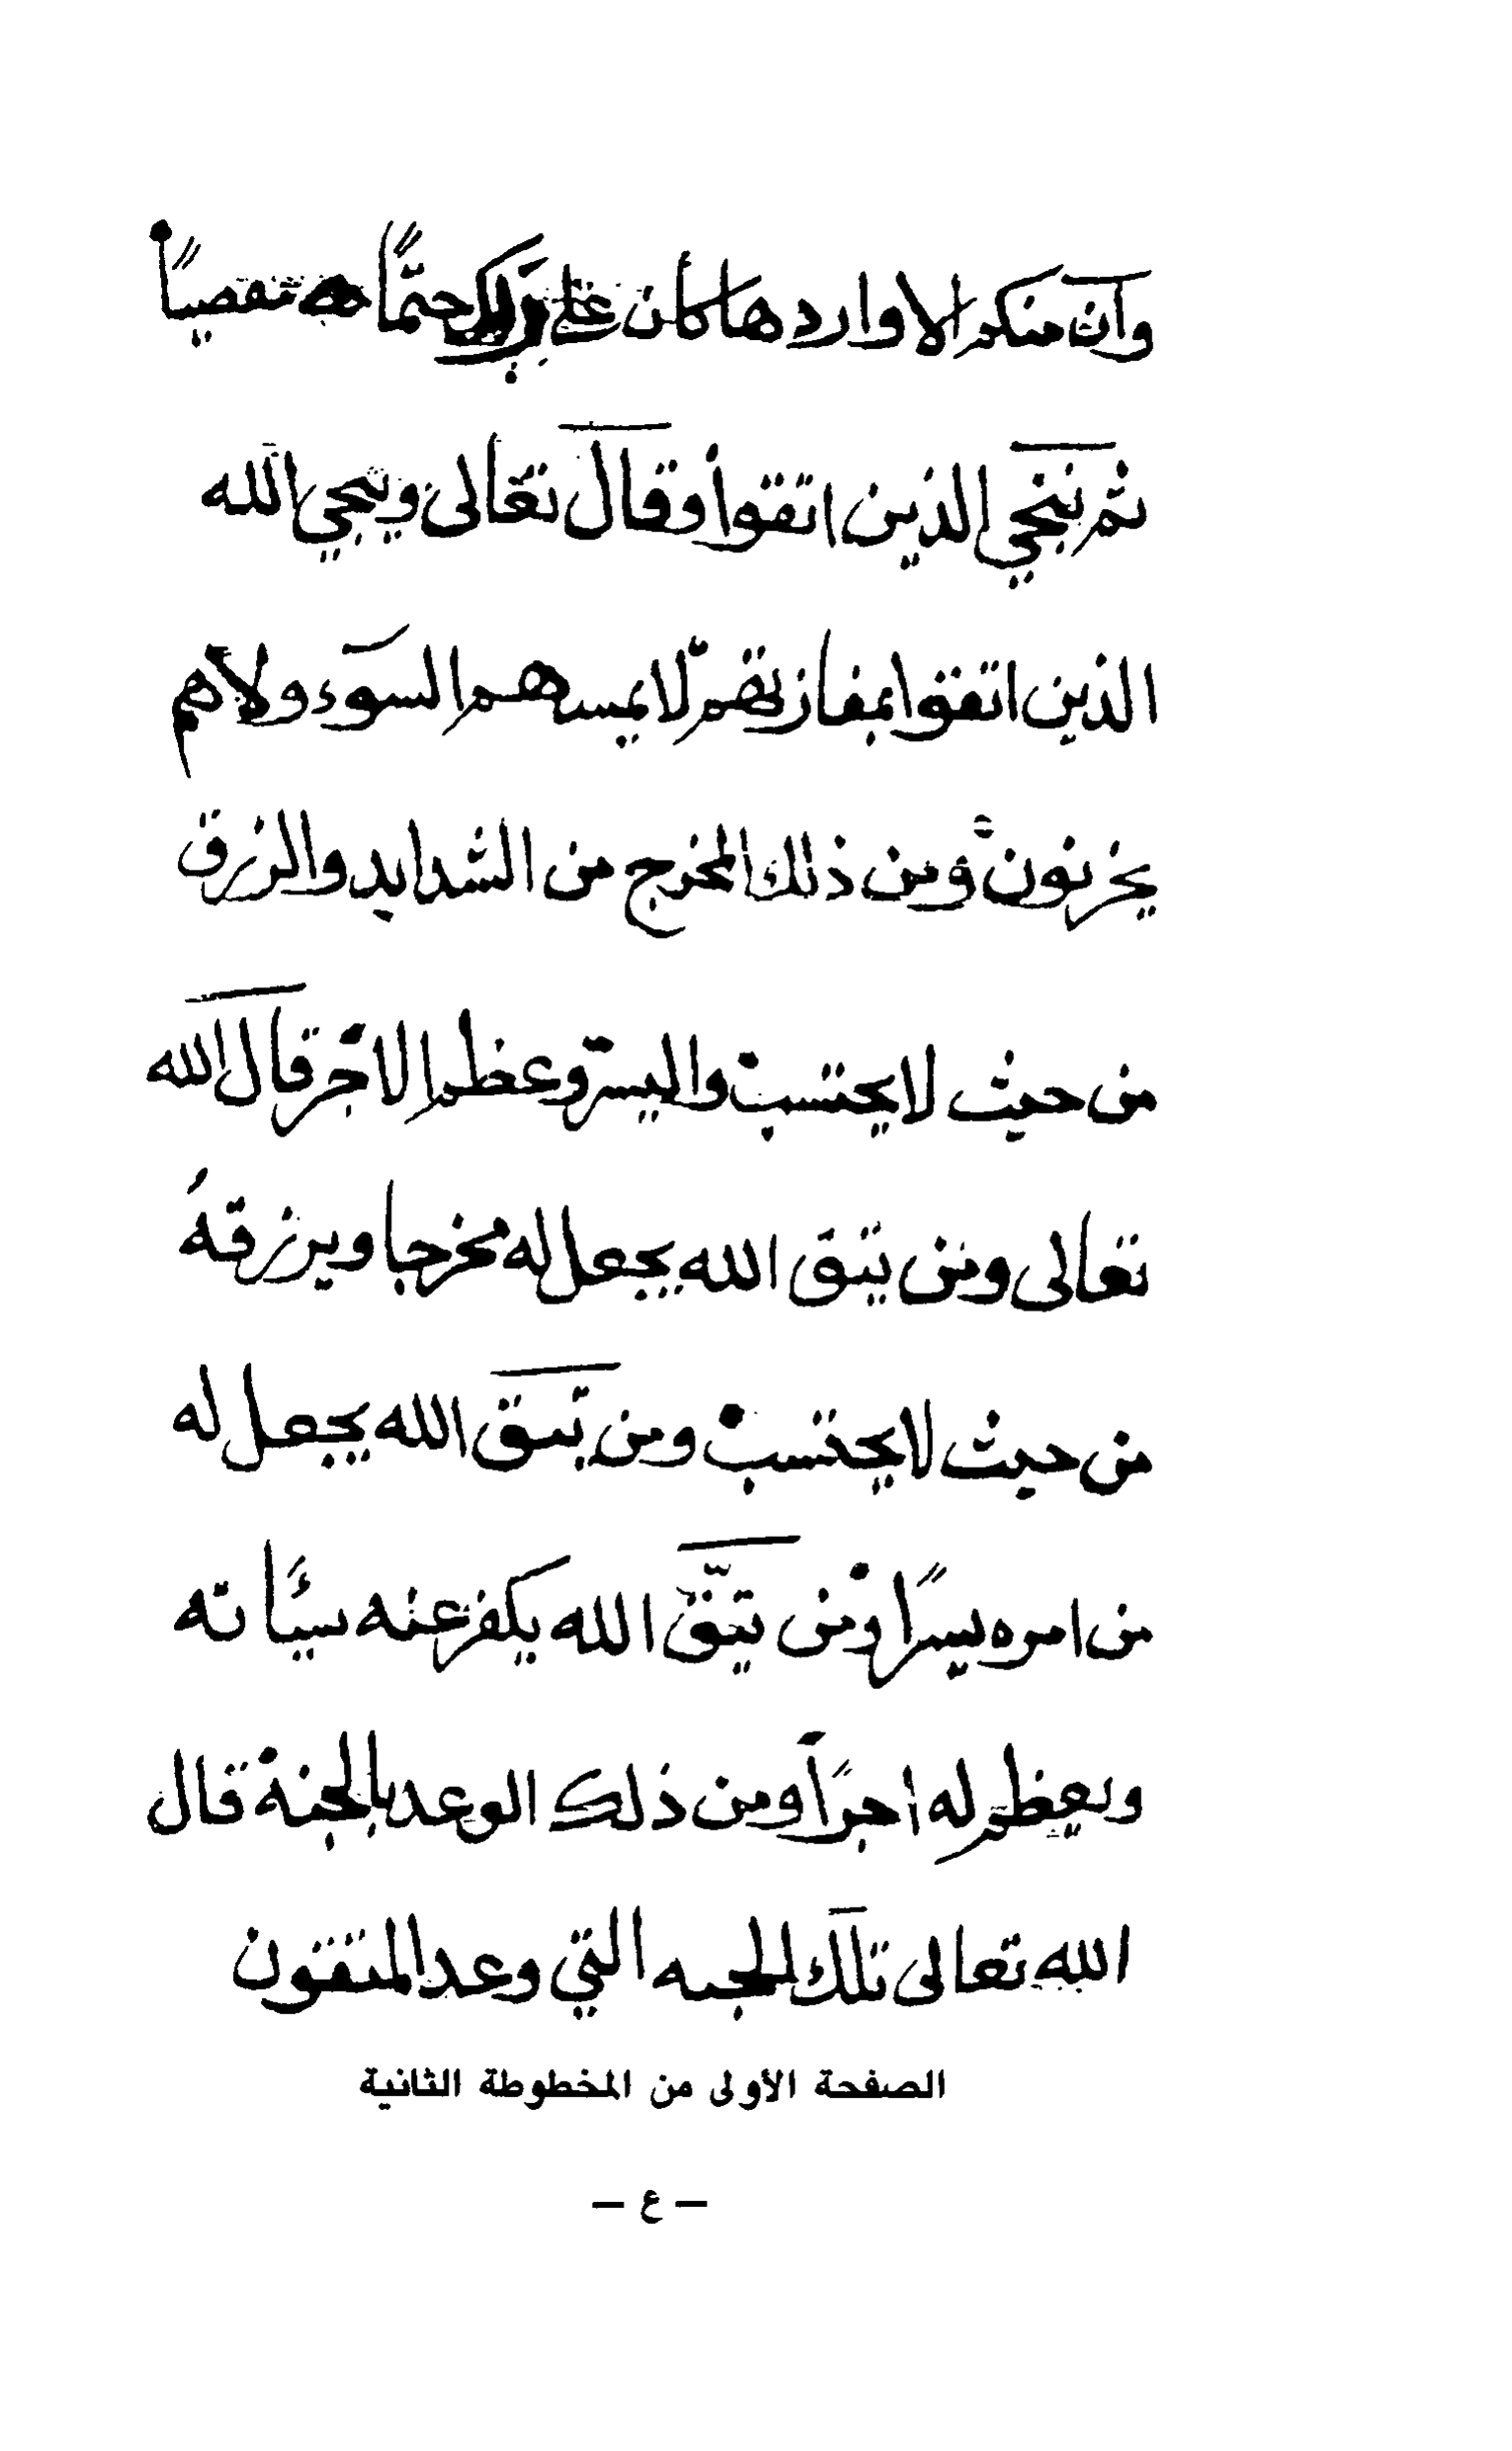 وان منكم الا واردها كان على ربك حتمًا مقضيًا
ثم ننجي الذين اتقوا وقال تعالى وينجي الله
الذين اتقوا بمفازتهم لا يمسهم السوء ولا هم
يحزنون ومن ذلك المخرج من الشدايد والرزق
من حيث لا يحتسب واليسر وعظم الاجر قال الله
تعالى ومن يتق الله يجعل له مخرجا ويرزقهُ
من حيث لا يحتسب ومن يتق الله يجعل له
من امره يسرًا ومن يتق الله يكفر عنه سيأته
ويعظم له اجرًا ومن ذلك الوعد بالجنة قال
الله تعالى تلك الجنه التي وعد المتقون
الصفحة الأولى من المخطوطة الثانية
– ع –